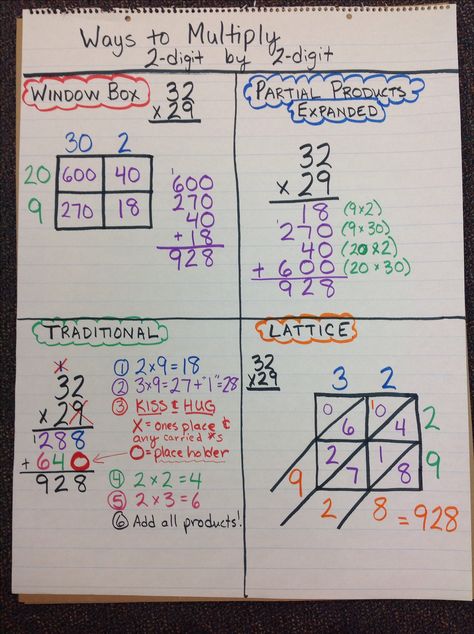 Ways to Multiply
2-digit by 2-digit
WINDOW BOX
32
x 29
30 2
20 600 40
9 270 18
1
600
270
40
+ 18
928
PARTIAL PRODUCTS
EXPANDED
32
x 29
18 (9x2)
1
270 (9x30)
40 (20x2)
+ 600 (20x30)
928
TRADITIONAL
32
x 29
1
288
+ 640
928
① 2x9=18
② 3x9=27+"1"=28
③ KISS & HUG
X = ones place &
any carried #s
O = place holder
④ 2x2=4
⑤ 2x3=6
⑥ Add all products!
LATTICE
32
x29
3 2
0 6 0 4 2
2 7 1 8 9
1
9 2 8 = 928